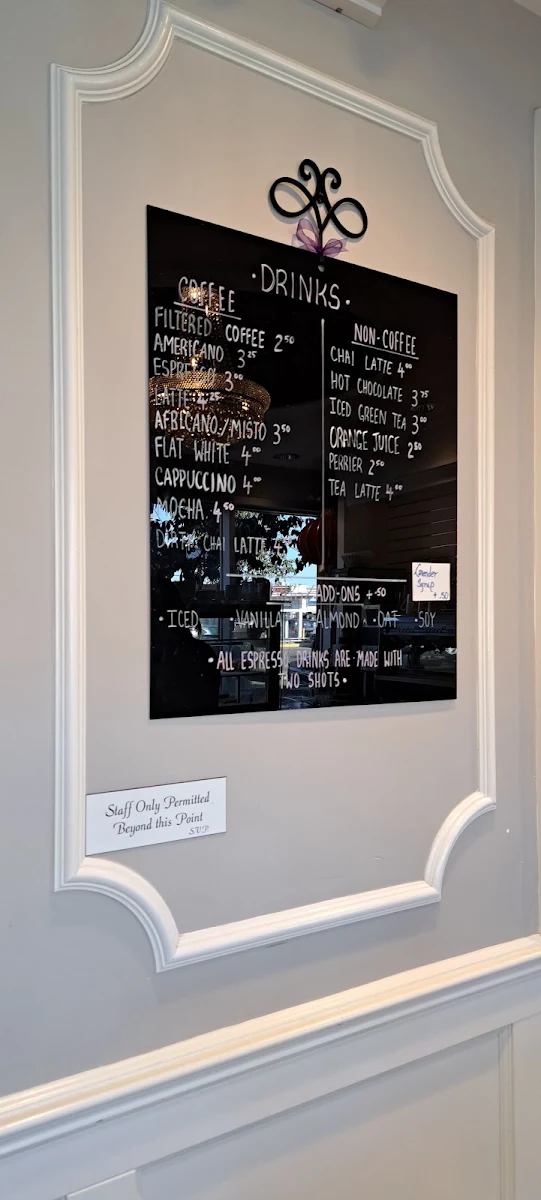 ·DRINKS·
COFFEE
FILTERED COFFEE 2⁵⁰
AMERICANO 3²⁵
ESPRESSO 3⁰⁰
LATTE 4²⁵
AFRICANO/MISTO 3⁵⁰
FLAT WHITE 4⁰⁰
CAPPUCCINO 4⁰⁰
MOCHA 4⁵⁰
CHAI LATTE
NON-COFFEE
CHAI LATTE 4⁰⁰
HOT CHOCOLATE 3⁷⁵
ICED GREEN TEA 3⁰⁰
ORANGE JUICE 2⁵⁰
PERRIER 2⁵⁰
TEA LATTE 4⁰⁰
Lavender
Syrup
+.50
ADD-ONS +·⁵⁰
·ICED ·VANILLA ·ALMOND ·OAT ·SOY
·ALL ESPRESSO DRINKS ARE MADE WITH
TWO SHOTS·
Staff Only Permitted
Beyond this Point
SVP